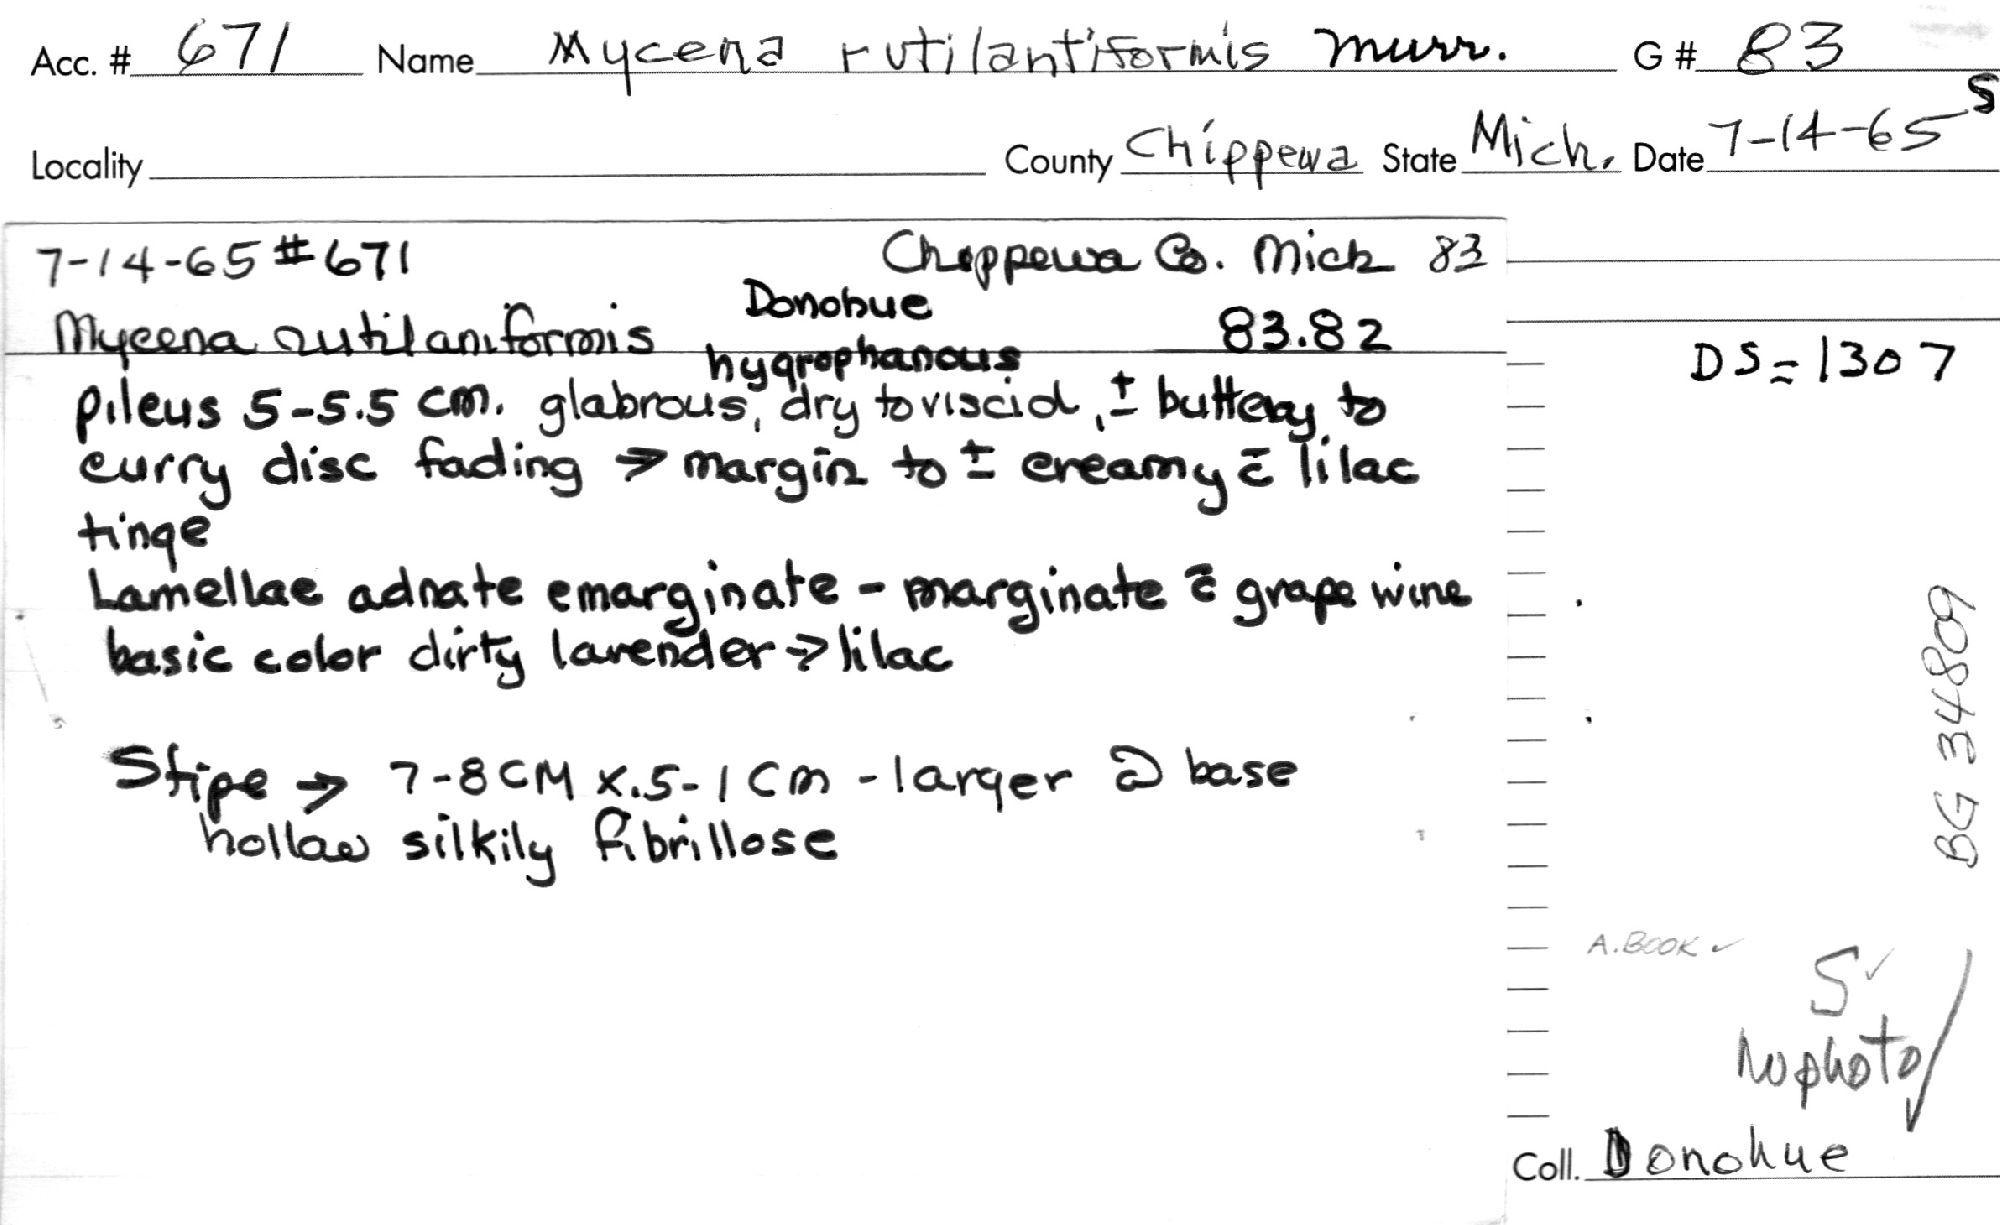 Acc. # 671 Name Mycena rutilantiformis Murr. G # 83
S
Locality County Chippewa State Mich. Date 7-14-65
7-14-65 #671 Chippewa Co. Mich 83
Donohue
Mycena rutilaniformis 83.82
hygrophanous
DS=1307
pileus 5-5.5 cm. glabrous, dry to viscid, ± buttery to
curry disc fading → margin to ± creamy c̄ lilac
tinge
Lamellae adnate emarginate - marginate c̄ grape wine
basic color dirty lavender → lilac
Stipe → 7-8 CM x .5-1 Cm - larger @ base
hollow silkily fibrillose
BG 34809
A. BOOK ✓
S ✓
No photo
Coll. Donohue